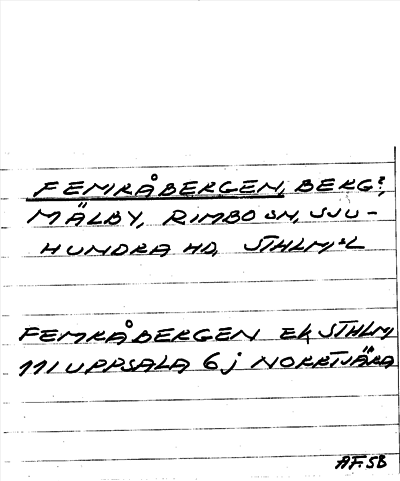 FEMRÅBERGEN, BERG?,
MÄLBY, RIMBO SN, SJU-
HUNDRA HD, STHLMS L
FEMRÅBERGEN EK STHLM
111 UPPSALA 6 j NORRTJÄRA
AF. 53